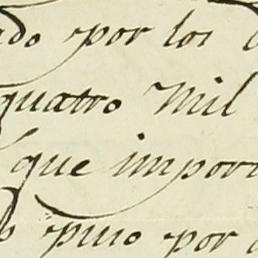 do por los
quatro Mil
que impor
por